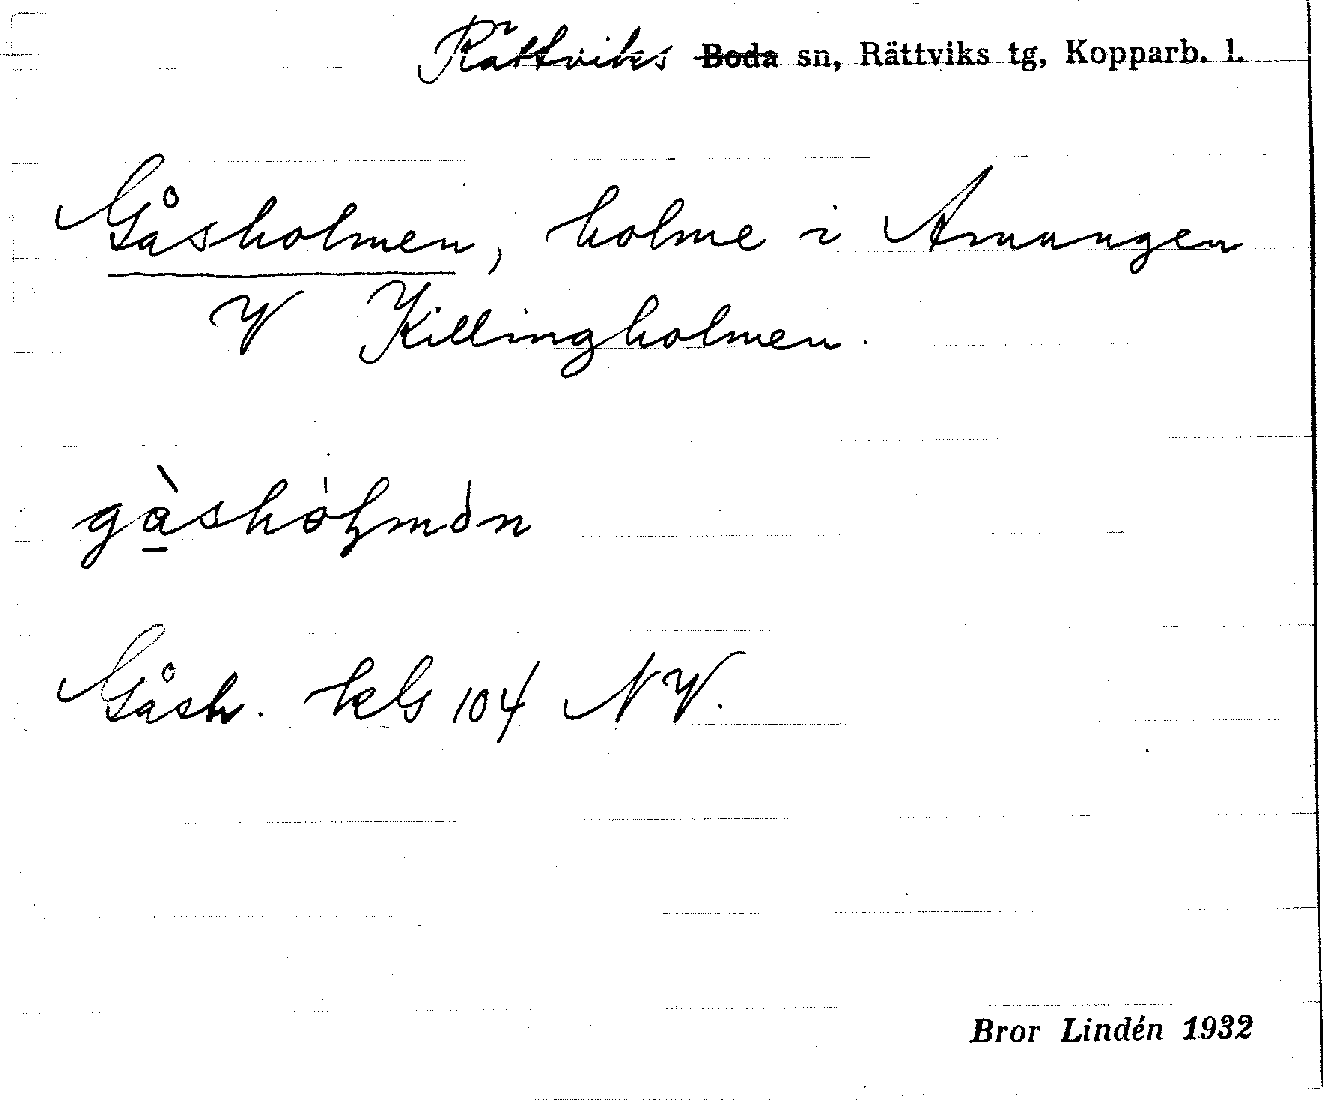 Rättviks ~~Boda~~ sn, Rättviks tg, Kopparb. l.
Gåsholmen, holme i Amungen
V Killingholmen.
gàshòɫmòn
Gåsh. kls 104 NV.
Bror Lindén 1932